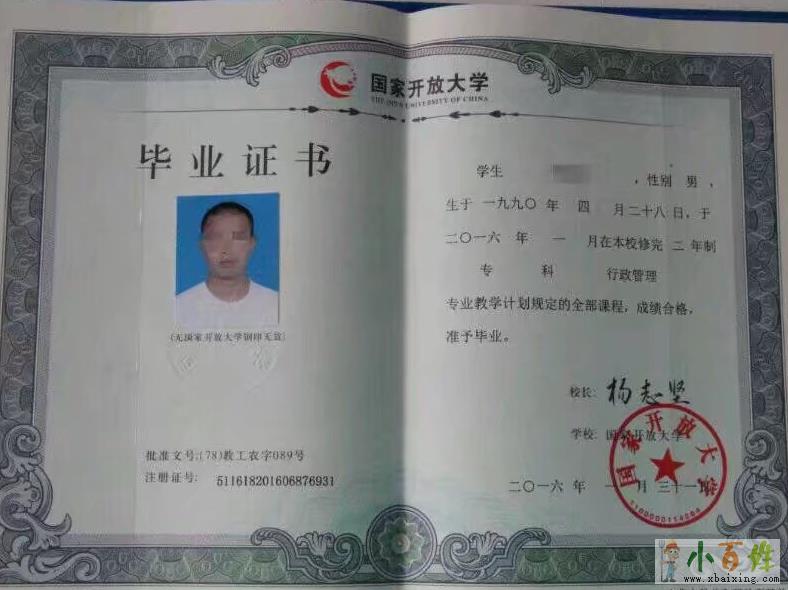 国家开放大学
THE OPEN UNIVERSITY OF CHINA
毕业证书
(无国家开放大学钢印无效)
批准文号:(78)教工农字089号
注册证号: 511618201606876931
学生 ，性别 男 ，
生于 一九九〇 年 四 月二十八日，于
二〇一六 年 一 月在本校修完 二 年制
专 科 行政管理
专业教学计划规定的全部课程，成绩合格，
准予毕业。
校长: 杨志坚
学校: 国家开放大学
国家开放大学
1100000114284
二〇一六 年 一 月 三十一日
小百姓
www.xbaixing.com